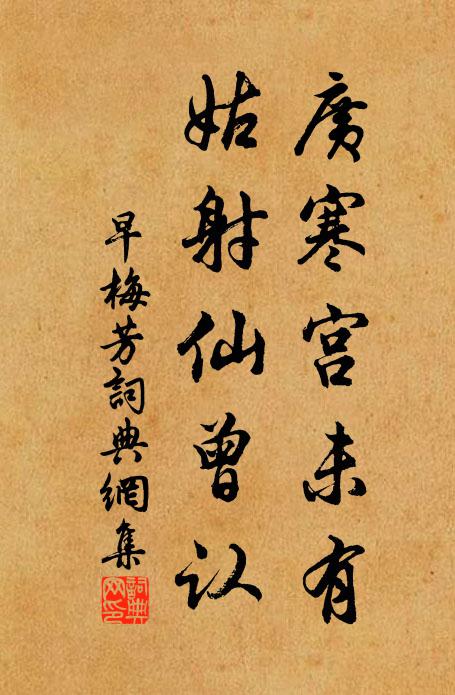 廣寒宮未有
姑射仙曾认
早梅芳詞典網集
詞典網印